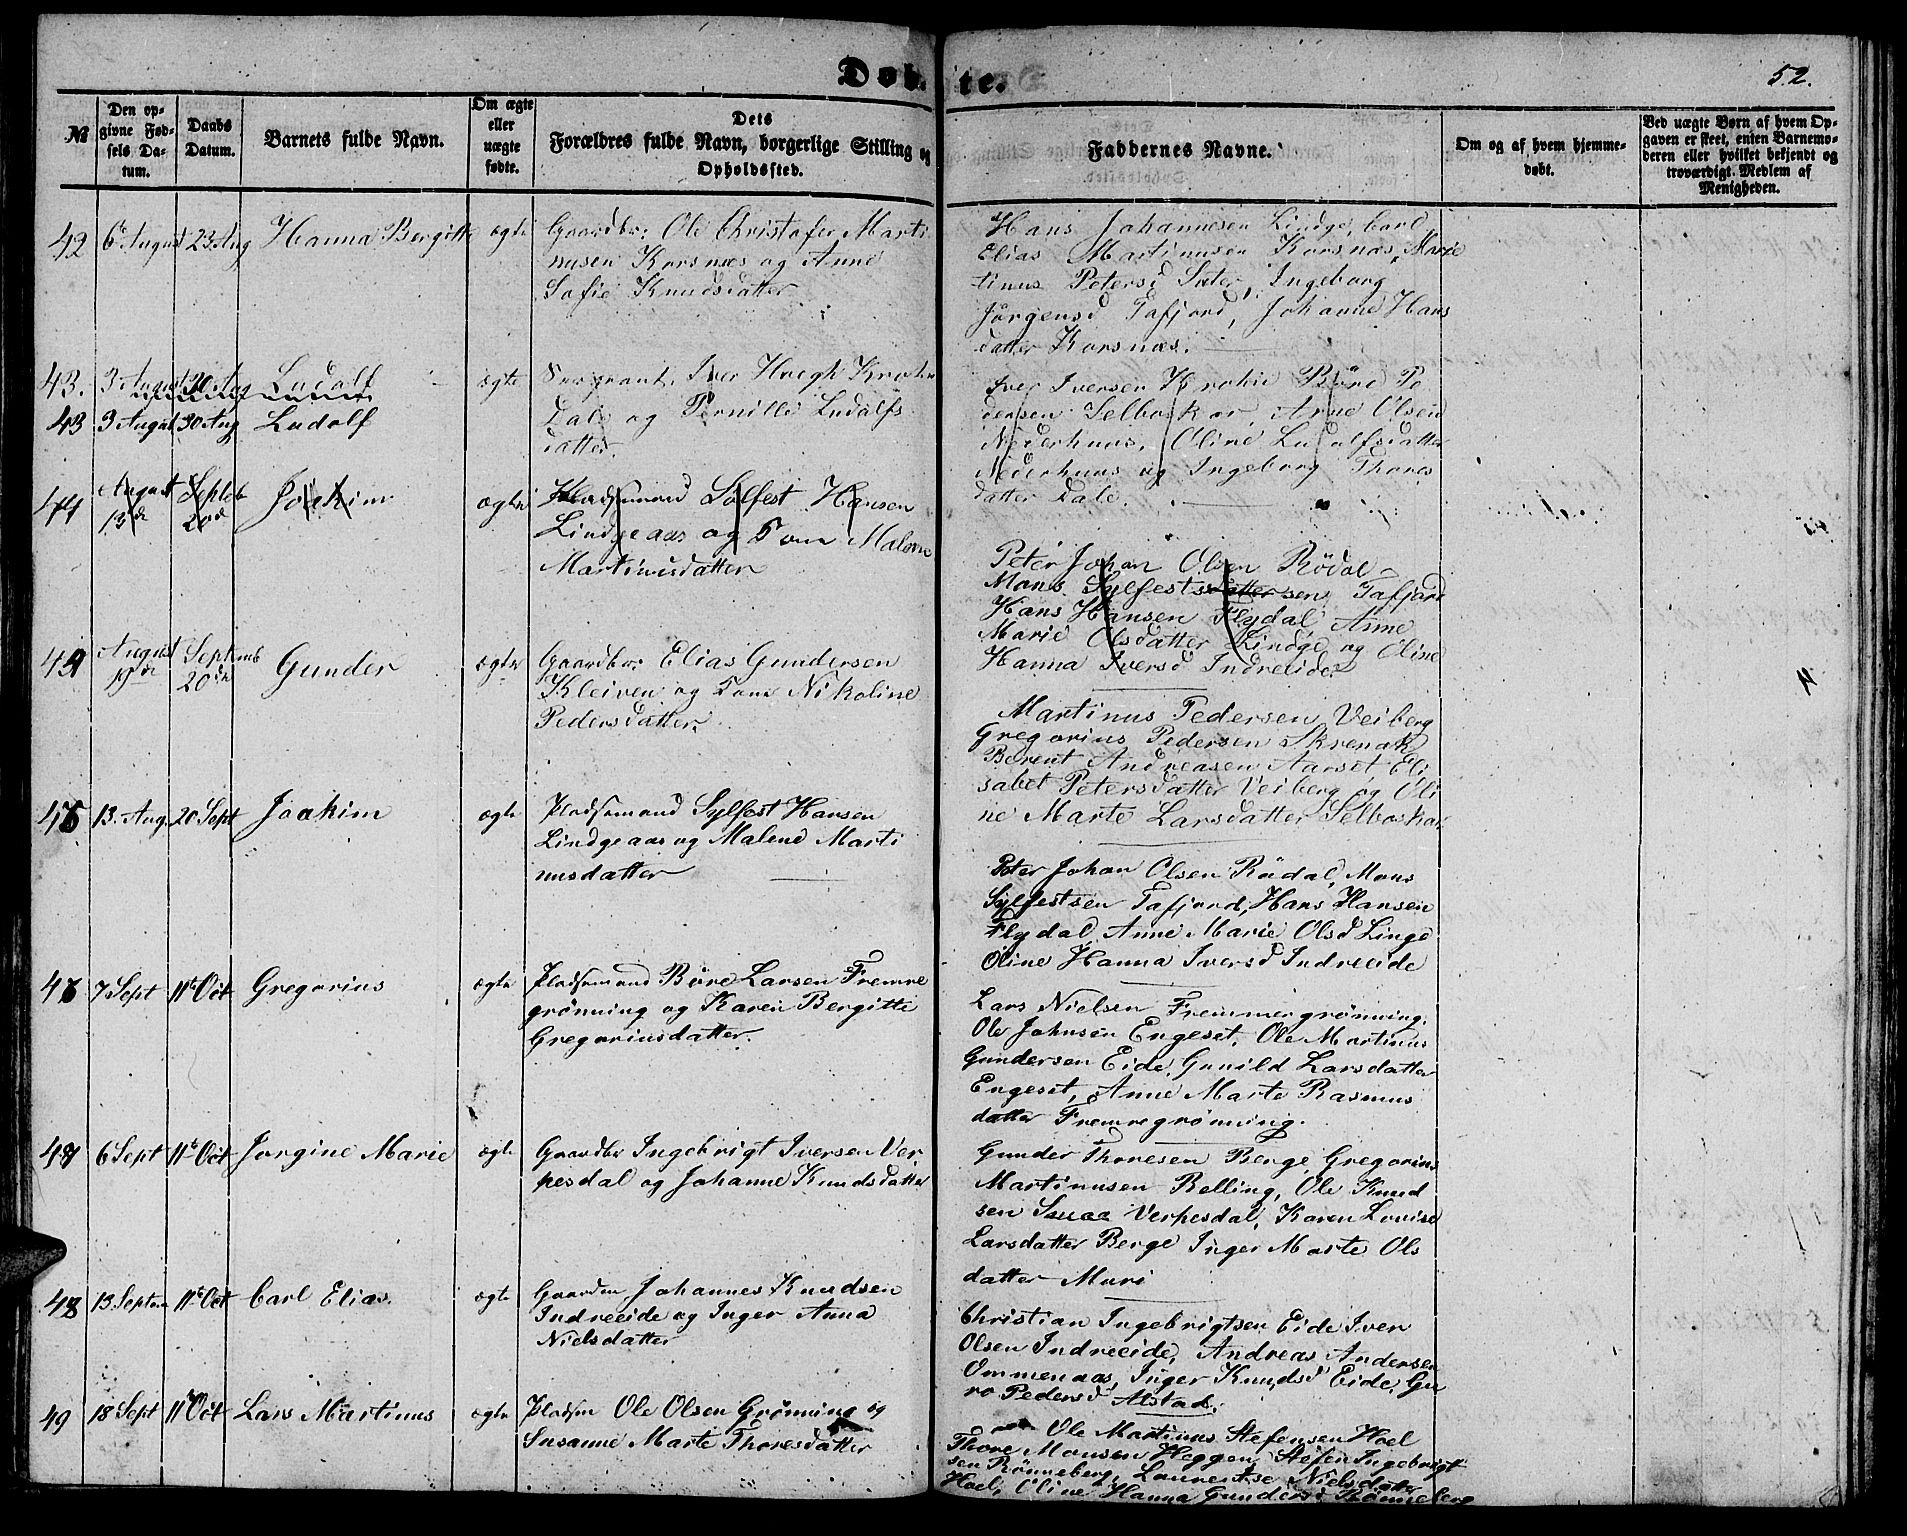 Døbte.
52.
№
Den opgivne Fødsels Datum.
Daabs Datum.
Barnets fulde Navn.
Om ægte eller uægte fødte.
Dets Forældres fulde Navn, borgerlige Stilling og Opholdssted.
Faddernes Navne.
Om og af hvem hjemmedøbt.
Ved uægte Børn af hvem Opgaven er skeet, enten Barnemoderen eller hvilket bekjendt og troværdigt Medlem af Menigheden.
42 6te August 23 Aug Hanna Bergitte ægte
Gaardbr: Ole Christofer Marti
nusen Korsnæs og Anne
Sofie Knudsdatter
Hans Johannesen Lindge, Carl
Elias Martinusen Korsnæs, Marie
tinus Petersd Sæter, Ingeborg
Jørgensd Tafjord, Johanne Hans
datter Korsnæs.
43. 3 August 30 Aug Ludolf
43 3 August 30 Aug Ludolf ægte
Sergeant. Iver Hoegh Krohn
Dale og Pernille Ludolfs
datter.
Iver Iversen Krohn Børe Pe
dersen Selboskar, Arne Olsen
Nederhuus, Oline Ludolfsdatter
Nederhuus og Ingeborg Thores
datter Dale.
44 August 13de Septeb 20de Joakim ægte
Pladsmand Sylfest Hansen
Lindgeaas og Kone Malene
Martinusdatter
Peter Johan Olsen Rødal
Mons Sylfestsdattersen Tafjord
Hans Hansen Flydal Anne
Marie Olsdatter Lindge og Oline
Hanna Iversd Indreeide
44 August 19de Septemb 20de Gunder ægte
Gaardbr: Elias Gundersen
Kleiven og Kone Nikoline
Pedersdatter.
Martinus Pedersen Veiberg
Gregorius Pedersen Skrenak
Berent Andreasen Aarset Eli
sabet Petersdatter Veiberg og Oli
ne Marte Larsdatter Selboskar
45 13. Aug. 20 Sept Joakim ægte
Pladsmand Sylfest Hansen
Lindgeaas og Malene Marti
nusdatter
Peter Johan Olsen Rødal, Mons
Sylfestsen Tafjord, Hans Hansen
Flydal, Anne Marie Olsd Linge
Oline Hanna Iversd Indreeide
46 7 Sept 11te Oct Gregorius ægte
Pladsmand Børe Larsen Fremre
grønning og Karen Bergitte
Gregoriusdatter.
Lars Nielsen Fremmergrønning.
Ole Johnsen Engeset, Ole Martinus
Gundersen Eide, Gunild Larsdatter
Engeset, Anne Marte Rasmus
datter Fremregrønning.
47 6 Sept 11te Oct Jørgine Marie ægte
Gaardbr Ingebrigt Iversen Ver
pesdal og Johanne Knudsdatter
Gunder Thoresen Berge, Gregorius
Martinusen Relling, Ole Knud
sen Verpesdal, Karen Lovise
Larsdatter Berge Inger Marte Ols
datter Muri
48 13 Septem 11te Oct Carl Elias. ægte
Gaardm Johannes Knudsen
Indreeide og Inger Anna
Nielsdatter
Christian Ingebrigtsen Eide Iver
Olsen Indreeide, Andreas Andersen
Ommenaas, Inger Knudsd Eide, Gu
ro Pedersd Alstad.
49 18 Sept 11te Oct Lars Martinus ægte
Pladsm Ole Olsen Grønning og
Susanne Marte Thoresdatter
Ole Martinus Stefensen Hoel
Thore Monsen Heggen, Stefen Ingebrigt
sen Rønneberg, Laurentse Nielsdatter
Hoel, Oline Hanna Gundersd Rønneberg